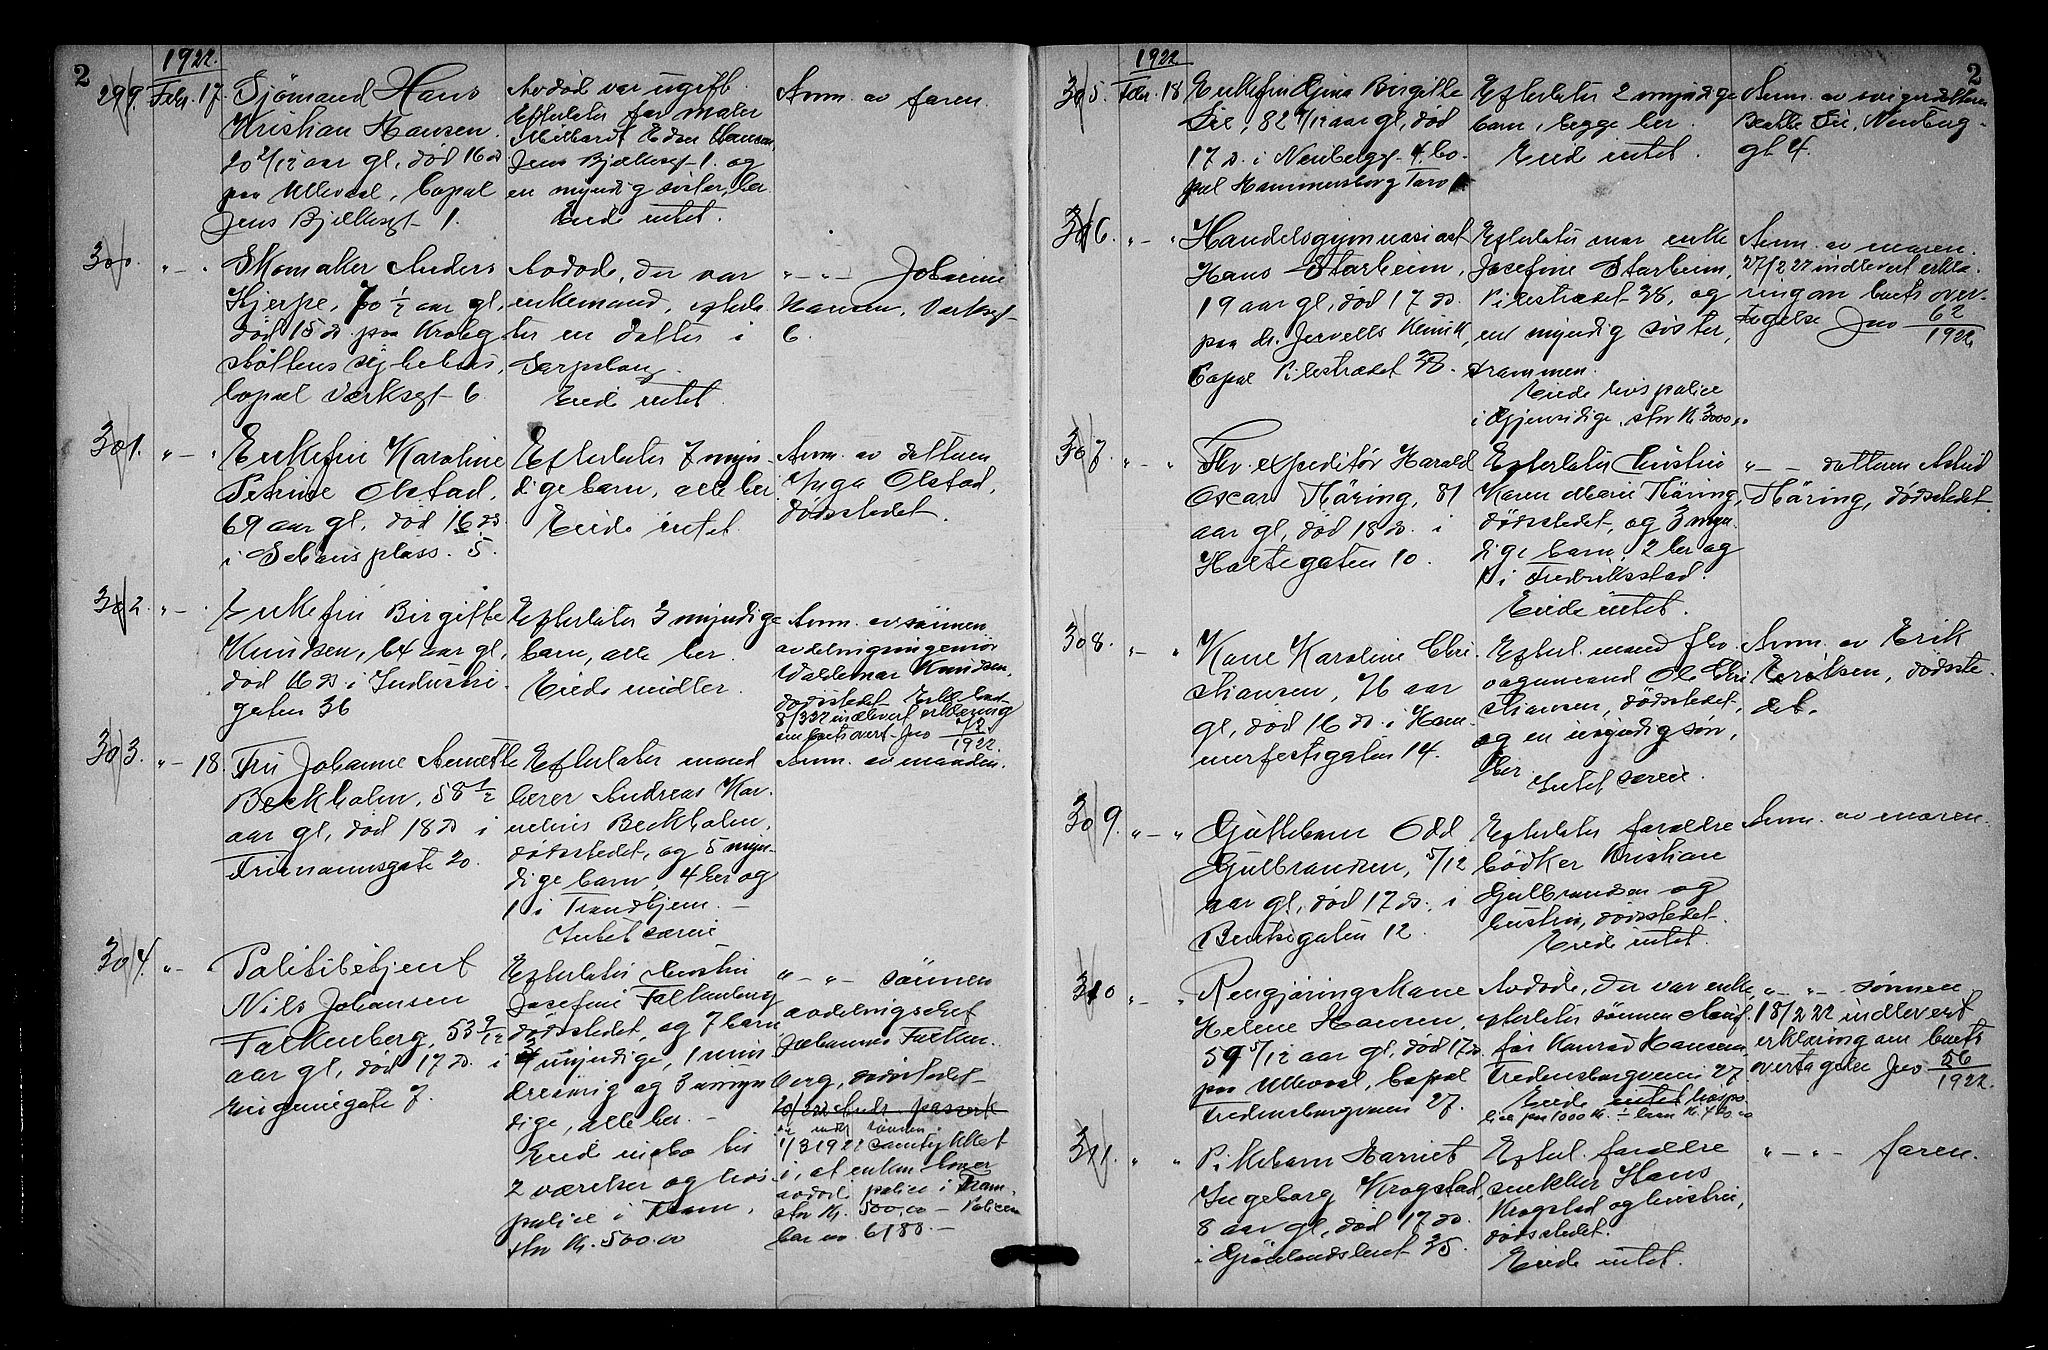 2
1922.
299. Febr. 17.
Sjömand Hans
Kristian Hansen.
20 2/12 aar gl, död 16 ds
paa Ullevaal, bopæl
Jens Bjelkesgt 1.
Avdöd var ugift.
Efterlater far maler
Hansen,
Jens Bjelkesgt 1. og
en myndig söster, her.
Eiede intet.
Anm. av faren.
300. " - "
Skomaker Anders
Hjerpe, 70 1/2 aar gl,
död 15 ds. paa Krohg
stöttens sykehus,
bopæl Værksgt 6
Avdöde, der var
enkemand, efterla-
ter en datter i
Sarpsborg.
Eiede intet.
" - " - Johanne
Hansen, Værksgt
6.
301. " - "
Enkefru Karoline
Petrine Olstad,
69 aar gl, död 16 ds.
i Schous plass. 5.
Efterlater 7 myn-
dige barn, alle her
Eiede intet.
Anm. av datteren
Olstad,
dödsstedet.
302. " - "
Enkefru Birgitte
Knudsen, 64 aar gl,
död 16 ds i Industri
gaten 36
Efterlater 3 myndige
barn, alle her.
Eiede midler.
Anm. av sönnen
avdelingsingeniör
Waldemar Knudsen,
dödsstedet
8/3 22 indlevert erklæring
om boets overt. Jno 72/1922.
303. " - 18
Fru Johanne Annette
Beckholm, 58 1/2
aar gl, död 18 ds i
Frimannsgate 20.
Efterlater mand
lærer Andreas Kor-
nelius Beckholm,
dödsstedet, og 5 myn-
dige barn, 4 her og
1 i Trondhjem. -
Intet særeie
Anm. av manden.
304. " - "
Politibetjent
Nils Johansen
Falkenberg, 53 9/12
aar gl, död 17 ds. i
Eugeniegate 7.
Efterlater hustru
Josefine Falkenberg,
dödsstedet, og 7 barn,
3 myndige, 1 min
dreaarig og 3 umyn
dige, alle her. -
Eiede indbo til
2 værelser og livs-
police i Fram,
stor Kr. 500.00
" - " - sönnen
avdelingschef
Johannes Falken-
berg, dödsstedet
1/3 1922 samtykket
i, at enken hæver
avdöd. police i Fram,
stor Kr. 500.00 - Policen
bar no. 6188. -
2
1922
305. Febr. 18
Enkefru Gina Birgitte
Lie, 82 9/12 aar gl, död
17 ds. i Neuberggt. 4, bo-
pæl Hammersborg Torv
Efterlater 2 myndige
barn, begge her.
Eiede intet.
Anm. av svigerdatteren
Lie, Neuberg-
gt 4.
306. " - "
Handelsgymnasiast
Hans Starheim,
19 aar gl, död 17 ds.
paa dr. Jervells Klinik,
bopæl Pilestrædet 38.
Efterlater mor enke
Josefine Starheim,
Pilestrædet 38, og
en myndig söster,
Drammen.
Eiede livspolice
i Gjensidige, stor Kr. 3000.00
Anm. av moren.
27/2 22 indlevert erklæ-
ring om boets over-
tagelse Jno 62/1922
307. " - "
Fhv. expeditör Harald
Oscar Thäring, 81
aar gl, död 18 ds. i
Holtegaten 10.
Efterlater hustru
Karen Marie Thäring,
dödsstedet, og 3 myn-
dige barn, 2 her og
1 i Fredriksstad.
Eiede intet.
" - - datteren Astrid
Thäring, dödsstedet.
308. " - "
Kone Karoline Chri
stiansen, 76 aar
gl, död 16 ds. i Ham-
merfestgaten 14.
Efterl. mand fhv.
vognmand Ole Chri
stiansen, dödsstedet,
og en myndig sön,
her
Intet særeie.
Anm. av Erik
Eriksen, dödsste-
det.
309. " - "
Guttebarn Odd
Gulbrandsen, 5/12
aar gl, död 17 ds. i
Bentsegaten 12.
Efterlater forældre
bödker Kristian
Gulbrandsen og
hustru, dödsstedet.
Eiede intet.
Anm. av moren.
310 " - "
Rengjöringskone
Helene Hansen,
59 5/12 aar gl, död 17 ds.
paa Ullevaal, bopæl
Fredensborgveien 27.
Avdöde, der var enke,
efterlater sönnen
Konrad Hansen,
Fredensborgveien 27.
Eiede intet livspo
lice paa 1000 Kr.
" - " - sönnen
18/2 22 indlevert
erklæring om boets
overtagelse Jno 56/1922.
311. " "
Pikebarn Harriet
Ingeborg Krogstad,
8 aar gl, död 17 ds.
i Grönlandsleret 35.
Efterl. forældre
snekker Hans
Krogstad og hustru,
dödsstedet.
Eiede intet.
" - " - faren.